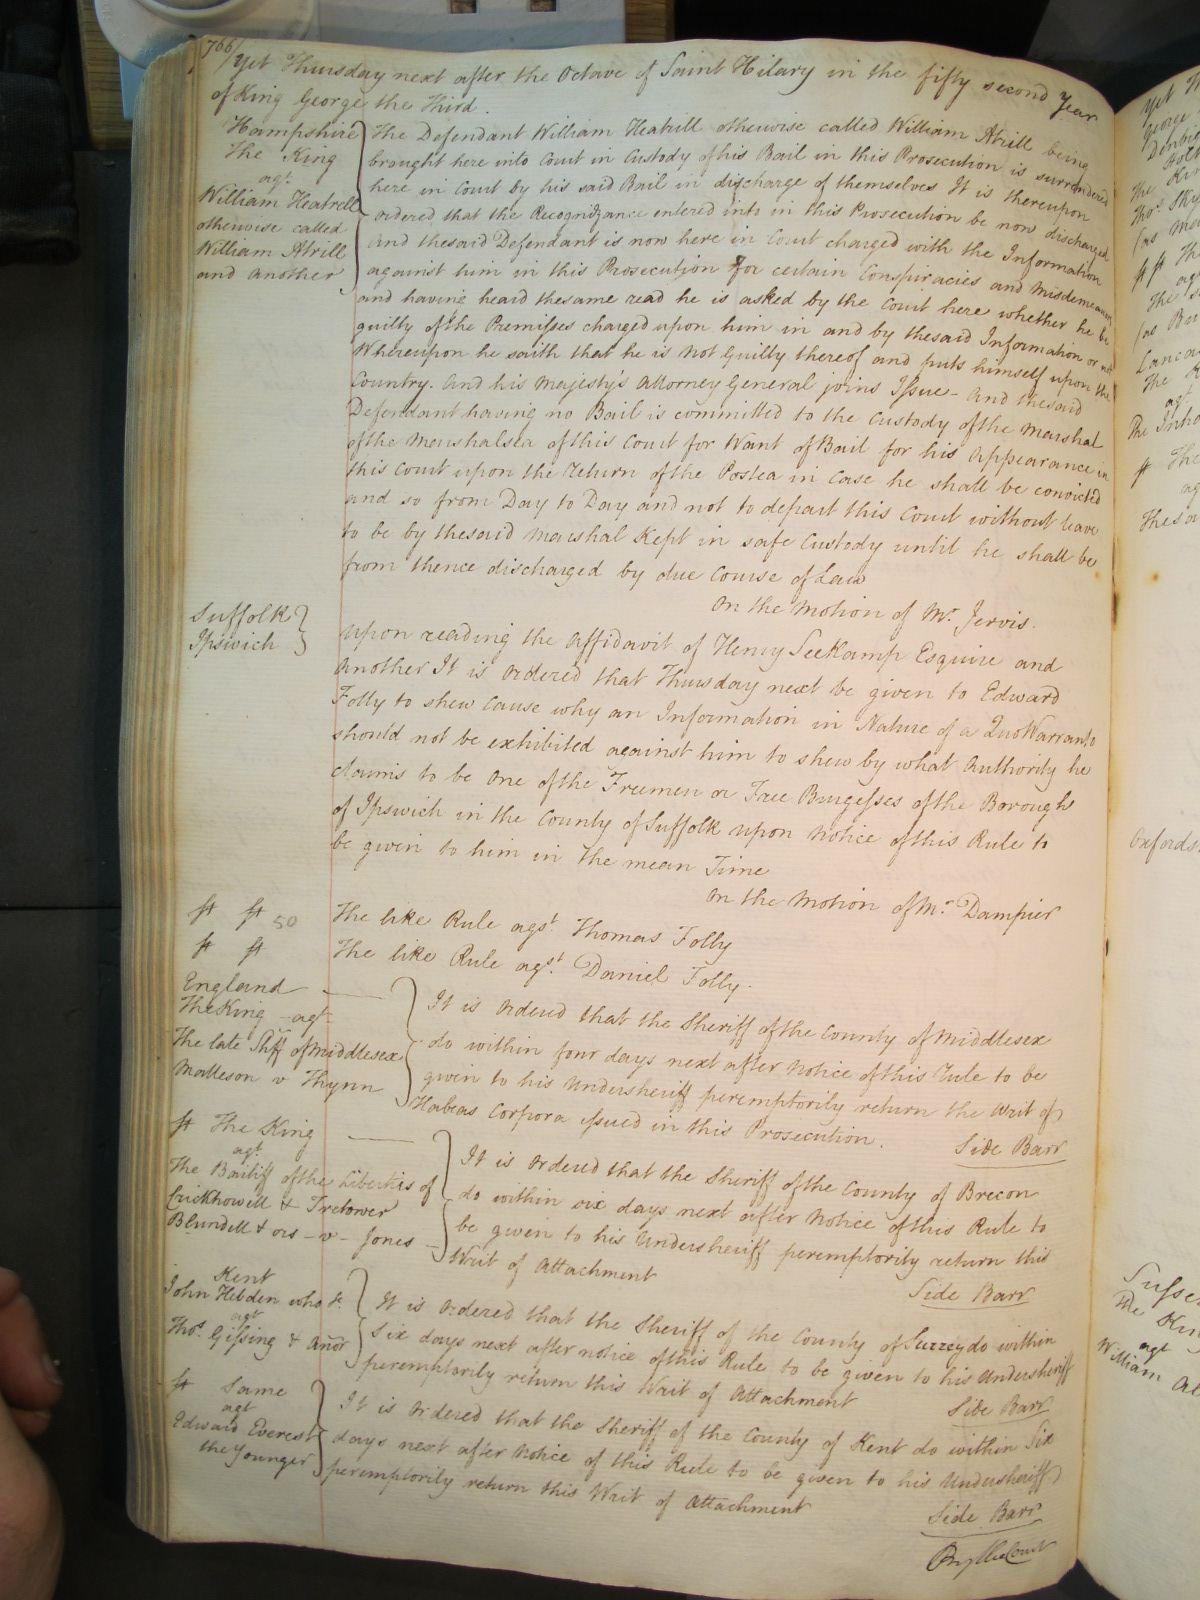 766/
Yet Thursday next after the Octave of Saint Hilary in the fifty second Year
of King George the Third.
Hampshire
The King
agt
William Heatrill
otherwise called
William Atrill
and another
The Defendant William Heatrill otherwise called William Atrill being
brought here into Court in Custody of his Bail in this Prosecution is surrendered
here in Court by his said Bail in discharge of themselves It is thereupon
ordered that the Recognizance entered into in this Prosecution be now discharged
and thesaid Defendant is now here in Court charged with the Information
against him in this Prosecution for certain Conspiracies and Misdemeanors
and having heard thesame read he is asked by the Court here whether he be
guilty of the Premisses charged upon him in and by thesaid Information or not
Whereupon he saith that he is not Guilty thereof and puts himself upon the
Country. And his Majesty's Attorney General joins Issue - And thesaid
Defendant having no Bail is committed to the Custody of the Marshal
of the Marshalsea of this Court for Want of Bail for his Appearance in
this Court upon the Return of the Postea in Case he shall be convicted
and so from Day to Day and not to depart this Court without leave
to be by thesaid Marshal Kept in safe Custody until he shall be
from thence discharged by due Course of Law
On the Motion of Mr. Jervis.
Suffolk
Ipswich
Upon reading the Affidavit of Henry Seekamp Esquire and
Another It is Ordered that Thursday next be given to Edward
Folly to shew Cause why an Information in Nature of a Quo Warranto
should not be exhibited against him to shew by what Authority he
claims to be One of the Freemen or Free Burgesses of the Borough
of Ipswich in the County of Suffolk upon Notice of this Rule to
be given to him in the mean Time
On the Motion of Mr. Dampier
ft ft 50 The like Rule agst. Thomas Folly
ft ft The like Rule agst. Daniel Folly.
England
The King agt
The late Shff of Middlesex
Matteson v Thynn
It is Ordered that the Sheriff of the County of Middlesex
do within four days next after Notice of this Rule to be
given to his Undersheriff peremptorily return the Writ of
Habeas Corpora issued in this Prosecution.
Side Barr
ft The King
agt
The Bailiff of the Liberties of
Crickhowell & Tretower
Blundell & ors - v - Jones
It is Ordered that the Sheriff of the County of Brecon
do within six days next after Notice of this Rule to
be given to his Undersheriff peremptorily return this
Writ of Attachment
Side Barr
Kent
John Hebden who &c.
agt
Thos. Gissing & Anor
It is Ordered that the Sheriff of the County of Surrey do within
Six days next after notice of this Rule to be given to his Undersheriff
peremptorily return this Writ of Attachment
Side Barr
ft Same
agt
Edward Everest
the Younger
It is Ordered that the Sheriff of the County of Kent do within Six
days next after Notice of this Rule to be given to his Undersheriff
peremptorily return this Writ of Attachment
Side Barr
By the Court